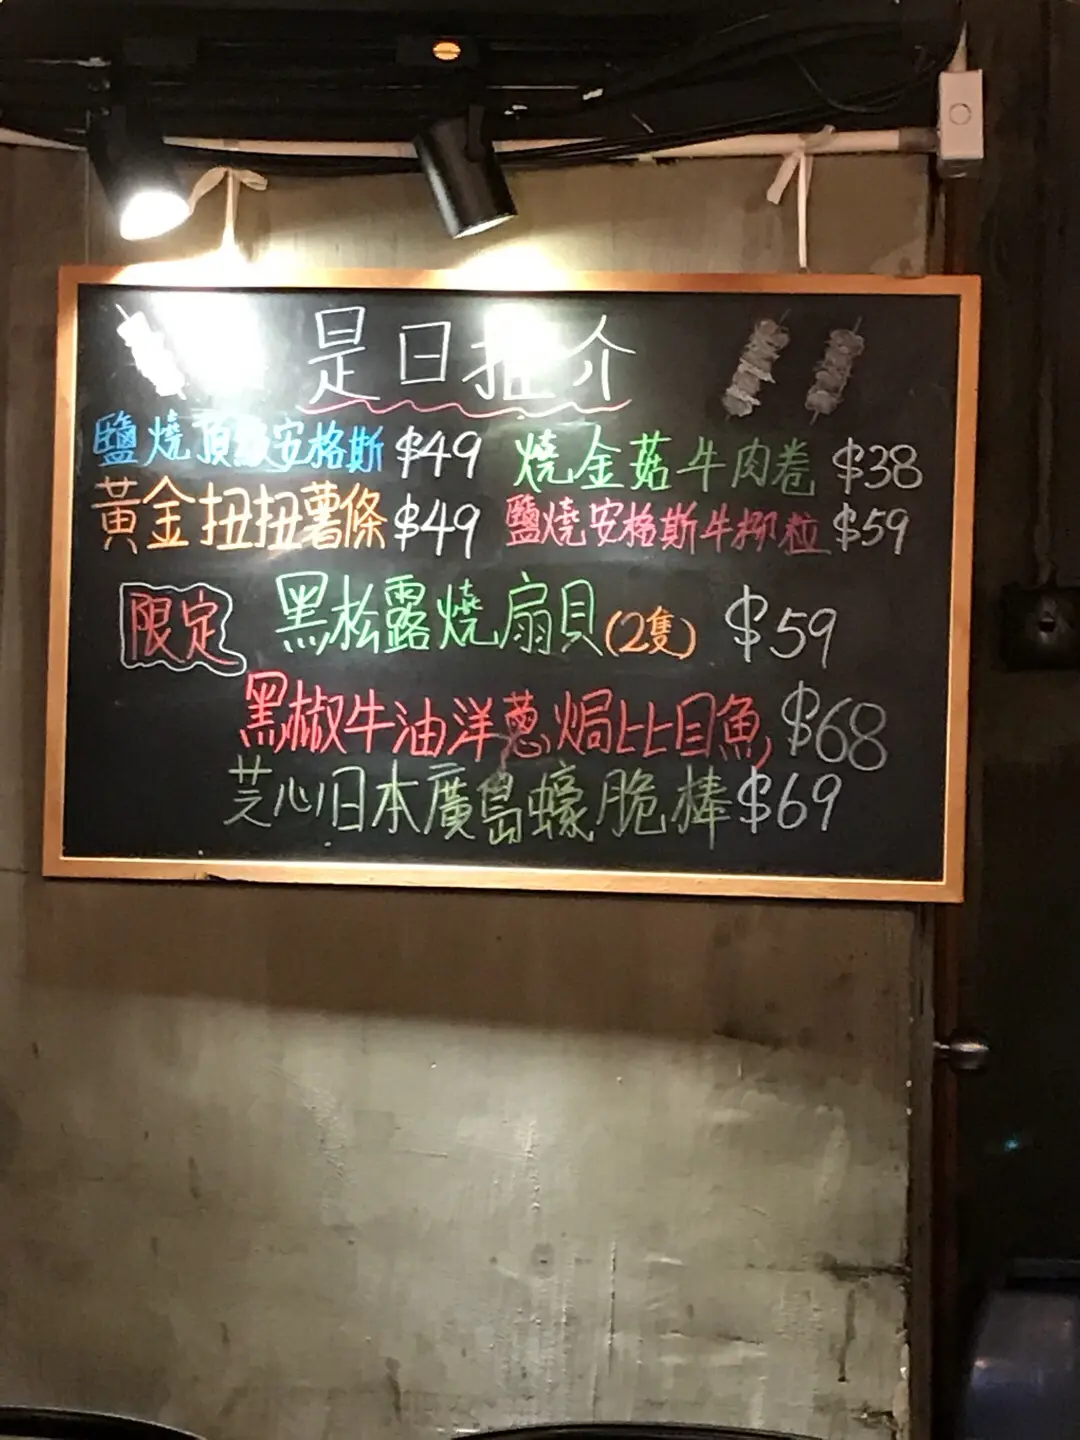 是日推介
鹽燒頂級安格斯 $49
燒金菇牛肉卷 $38
黃金扭扭薯條 $49
鹽燒安格斯牛柳粒 $59
限定
黑松露燒扇貝(2隻) $59
黑椒牛油洋蔥焗比目魚, $68
芝心日本廣島蠔脆棒 $69